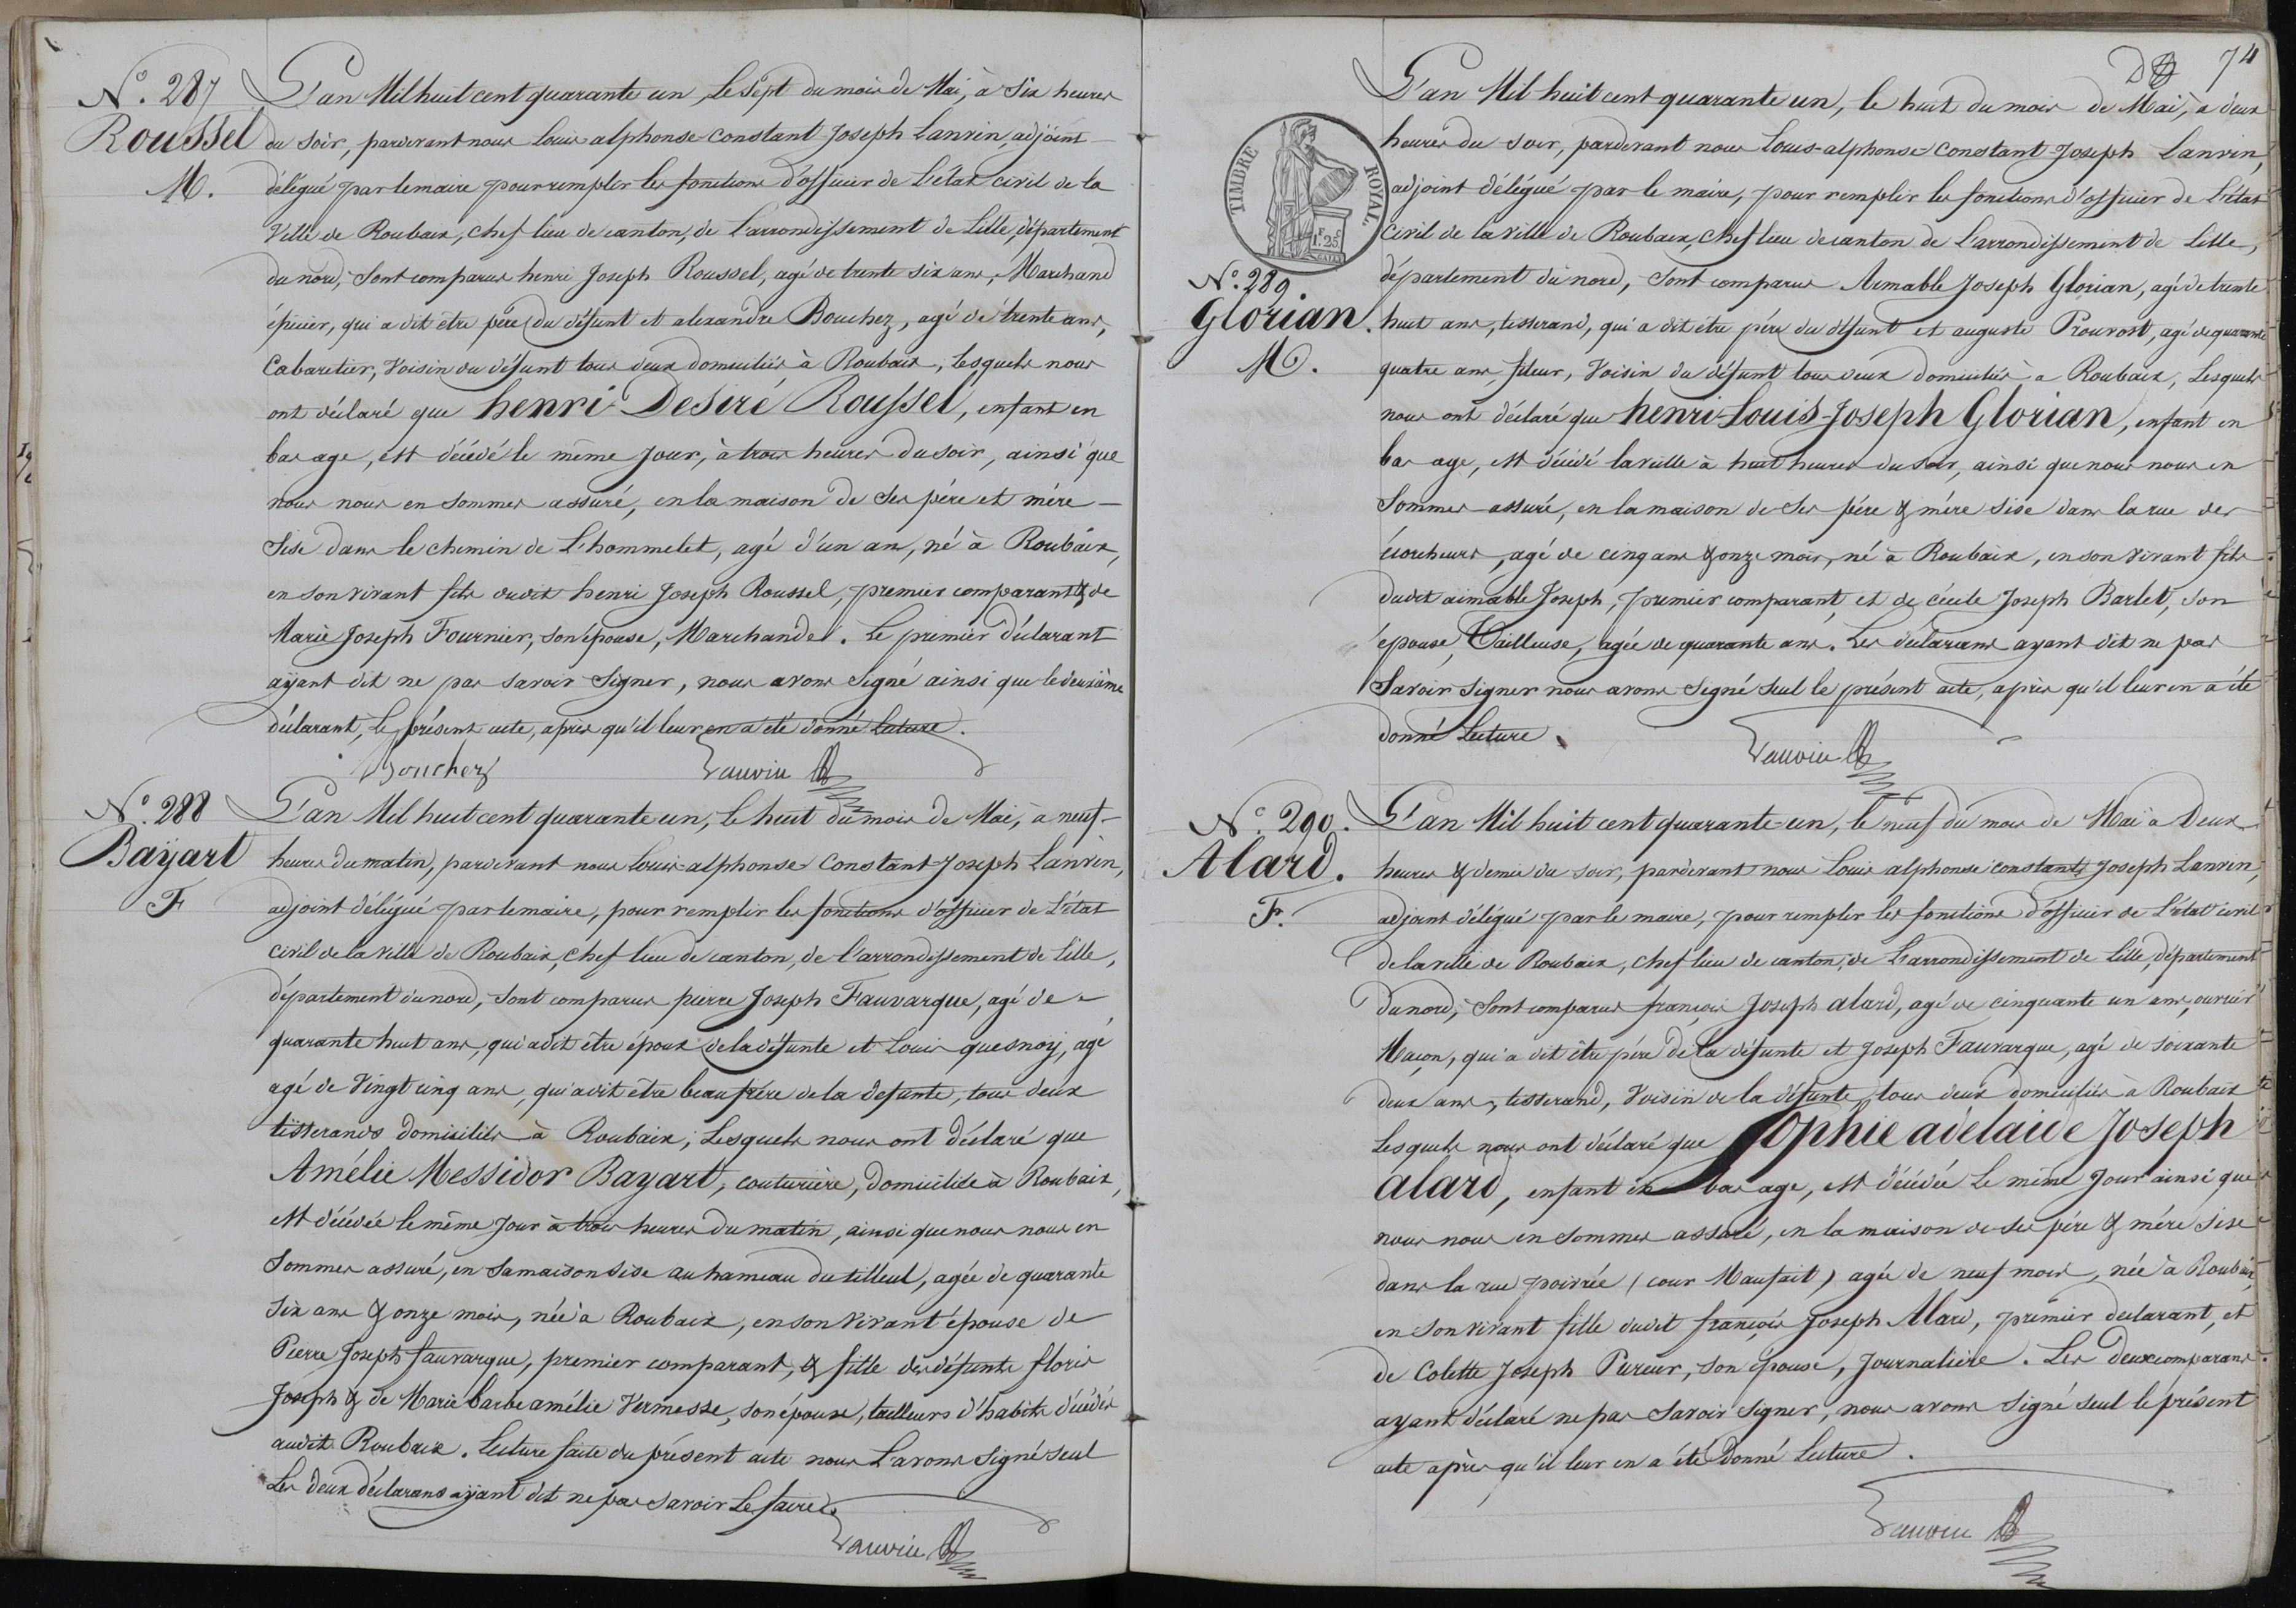 N.° 287
Roussel
M.
L'an Mil huit cent quarante un, le sept du mois de Mai, à Six heures
du soir, pardevant nous Louis alphonse constant Joseph Lanvin, adjoint
délégué par le maire pour remplir les fonctions d'officier de L'état civil de la
Ville de Roubaix, chef lieu de canton, de l'arrondissement de Lille, département
du nord, Sont comparus henri Joseph Roussel, agé de trente six ans, Marchand
épicier, qui a dit être père du défunt et alexandre Bouchez, agé de trente ans,
Cabaretier, Voisin du défunt tous deux domiciliés à Roubaix, Lesquels nous
ont déclaré que henri Desiré Roussel, enfant en
bas age, est décédé le même jour, à trois heures du soir, ainsi que
nous nous en sommes assuré, en la maison de Ses pére et mére
Sise dans le chemin de L'hommelet, agé d'un an, né à Roubaix,
en son vivant fils dudit henri Joseph Roussel, premier comparant & de
Marie Joseph Fournier, son épouse, Marchande. Le premier déclarant
ayant dit ne pas savoir signer, nous avons signé ainsi que le deuxième
déclarant, Le présent acte, après qu'il leur en a été donné lecture.
Bouchez Lanvin
N.° 288
Bayart
F
L'an Mil huit cent quarante un, le huit du mois de Mai, a neuf
heures du matin, pardevant nous Louis alphonse Constant Joseph Lanvin,
adjoint délégué par le maire, pour remplir les fonctions d'officier de L'état
civil de la ville de Roubaix, chef lieu de canton, de l'arrondissement de Lille,
département du nord, sont comparus pierre Joseph Fauvarque, agé de
quarante huit ans, qui a dit être époux de la défunte et Louis quesnoy, agé
agé de Vingt cinq ans, qui a dit être beau frére de la defunte, tous deux
tisserands domiciliés à Roubaix, Lesquels nous ont déclaré que
Amélie Messidor Bayart, couturière, domiciliée à Roubaix,
est décédée le même jour à trois heures du matin, ainsi que nous nous en
Sommes assuré, en sa maison sise au hameau du tilleul, agée de quarante
Six ans & onze mois, née à Roubaix, en son vivant épouse de
Pierre Joseph fauvarque, premier comparant, & fille des défunts floris
Joseph & de Marie barbe amélie Vermesse, son épouse, tailleurs d'habits décédés
audit Roubaix. Lecture faite du présent acte nous L'avons signé seul
Les deux déclarans ayant dit ne pas savoir Le faire.
Lanvin
74
TIMBRE ROYAL
1 F 25 C
N.° 289.
Glorian.
M.
L'an Mil huit cent quarante un, le huit du mois de Mai, a deux
heures du soir, pardevant nous Louis-alphonse Constant Joseph Lanvin,
adjoint délégué par le maire, pour remplir les fonctions d'officier de L'état
Civil de la ville de Roubaix, chef lieu de canton de L'arrondissement de Lille,
département du nord, sont comparus Aimable Joseph Glorian, agé de trente
huit ans, tisserand, qui a dit être pére du défunt et auguste Prouvost, agé de quarante
quatre ans, fileur, Voisin du défunt tous deux domiciliés a Roubaix, Lesquels
nous ont déclaré que henri-Louis-Joseph Glorian, enfant en
bas age, est décédé la veille à huit heures du soir, ainsi que nous nous en
Sommes assuré, en la maison de Ses pére & mére sise dans la rue des
écorcheurs, agé de cinq ans & onze mois, né à Roubaix, en son vivant fils
dudit aimable Joseph, premier comparant, et de cécile Joseph Barlet, son
épouse, Tailleuse, agée de quarante ans. Les déclarans ayant dit ne pas
Savoir signer nous avons signé seul le présent acte, après qu'il leur en a été
donné Lecture.
Lanvin
N.° 290.
Alard.
F.
L'an Mil huit cent quarante-un, le neuf du mois de Mai à Deux
heures & demie du soir, pardevant nous Louis alphonse constant Joseph Lanvin,
adjoint délégué par le maire, pour remplir les fonctions d'officier de L'état civil
de la ville de Roubaix, chef lieu de canton, de L'arrondissement de Lille, département
du nord, Sont comparus françois Joseph alard, agé de cinquante un ans, ouvrier
Maçon, qui a dit être pére de la défunte et Joseph Fauvarque, agé de soixante
deux ans, tisserand, Voisin de la défunte, tous deux domiciliés à Roubaix
Lesquels nous ont déclaré que Sophie adélaide Joseph
alard, enfant en bas age, est décédée Le même Jour ainsi que
nous nous en sommes assuré, en la maison de ses pére & mére sise
dans la rue poivrée (cour Maufait) agée de neuf mois, née à Roubaix,
en son vivant fille dudit françois Joseph Alard, premier declarant, et
de Colette Joseph Pureur, son épouse, Journalière. Les deux comparans
ayant déclaré ne pas savoir signer, nous avons signé seul le présent
acte après qu'il leur en a été donné Lecture.
Lanvin